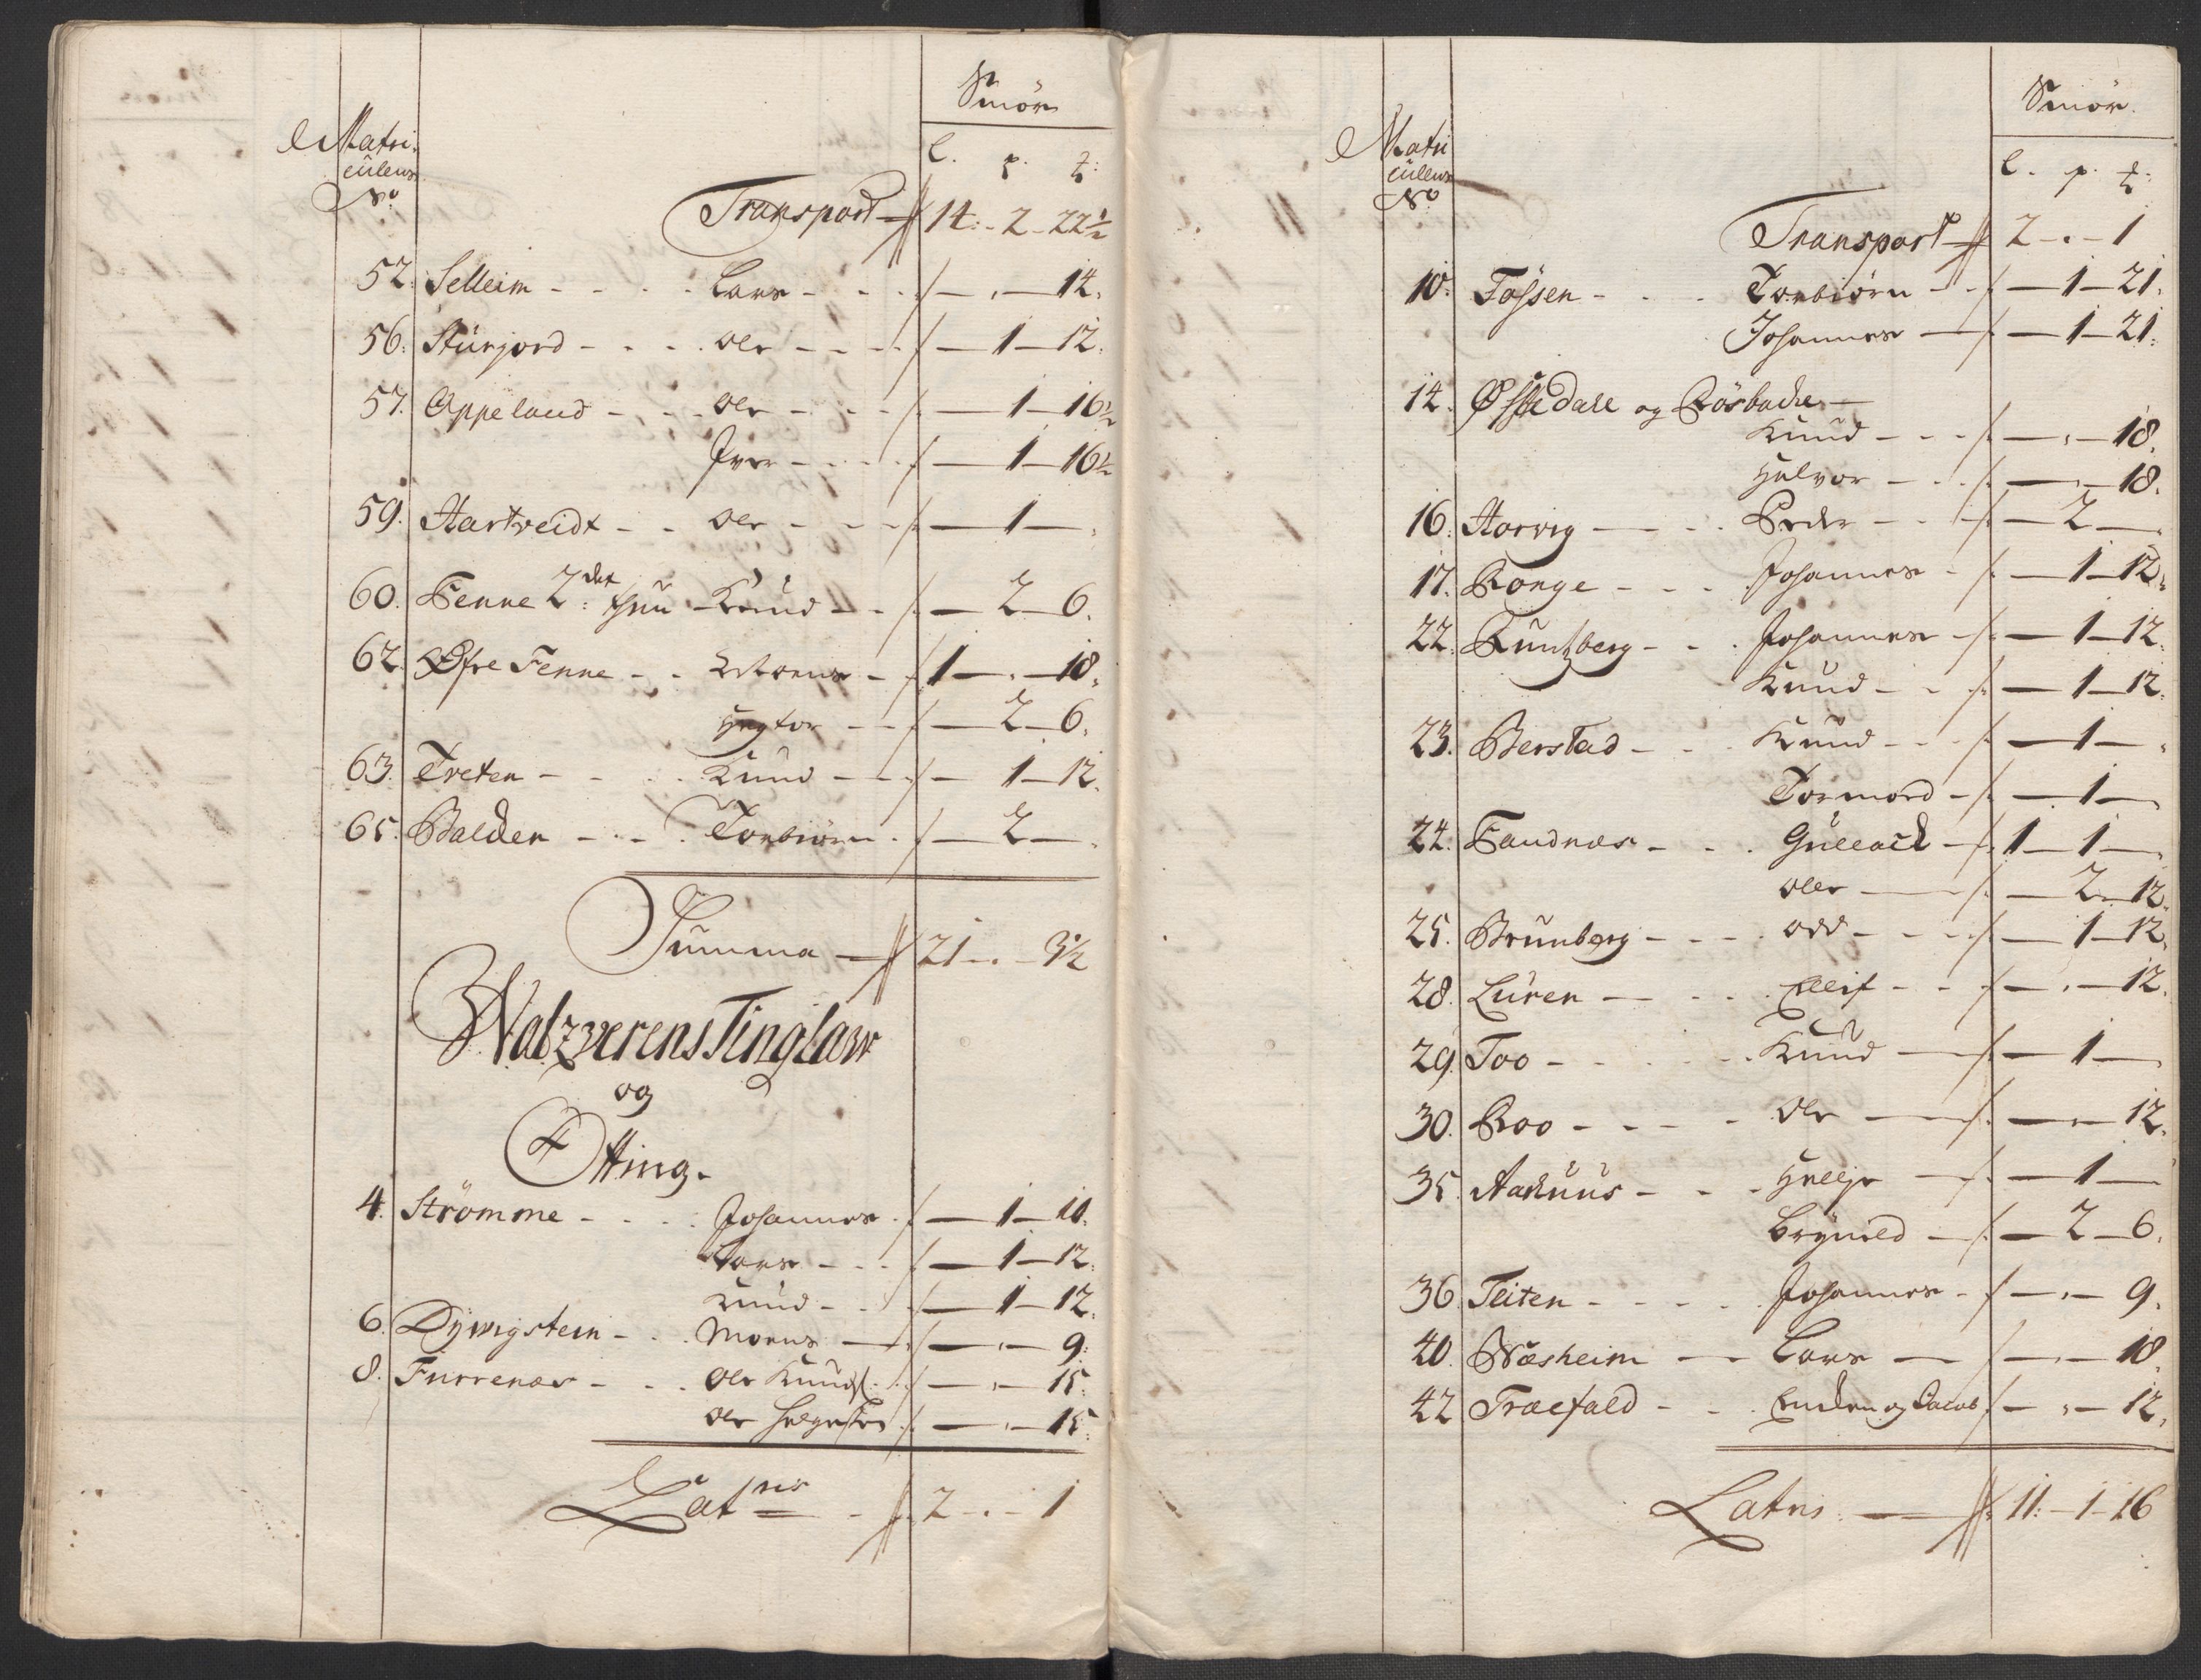 Smör
Matri-
culens
No
l. p. ℔:
Transport 14 - 2 - 22½
52. Selleim - - - Lars - - - 12.
56. Sturjord - - - Ole - - - 1 - 12.
57. Oppeland - - - Ole - - - 1 - 16½
Iver - - - 1 - 16½
59. Hartveidt - - Ole - - - 1 -
60. Fenne 2det tun - Knud - - 2 - 6.
62. Øfre Fenne - - Mons - 1 - - 18.
- - 2 - 6.
63. Treten - - - Knud - - 1 - 12.
65. Balder - - - Torbiörn - 2 -
Summa 21 - - 3½
Walzverens Tinglaw
og
Otting.
4. Strömme - - - Johannes - 1 - 10.
Lars - - - 1 - 12.
Knud - - - 1 - 12.
6. Dywigstein - - Mons - - 9.
8. Furrenæs - - - Ole Knuds. - - 15.
Ole - - 15.
Latris 2 - - 1
Smör.
Matri
culens
No
l. p. ℔:
Transport 2 - - 1
10. Fossen - - - Torbiörn - - 1 - 21.
Johannes - 1 - 21.
14. Østedall og Rösbache -
Knud - - - - 18.
Halvor - - - - 18.
16. Horvig - - - Peder - - 2 -
17. Ronge - - - Johannes - 1 - 12.
22. Runtzberg - - Johannes - 1 - 12.
Knud - - - 1 - 12.
23. Berstad - - - Knud - - - 1 -
Tormod - 1 -
24. Sandnæs - - - Gullack - 1 - 1 -
Ole - 2 - 12.
25. Brunberg - - - Odd - - - 1 - 12.
28. Luren - - - Ellif - - - - 12.
29. Too - - - - Knud - 1 -
30. Roo - - - - Ole - - 12.
35. Aakuus - - - Hellje - 1 -
Brynild - 2 - 6.
36. Teiten - - - - Johannes - - 9.
40. Næsheim - Lars - - 18.
42 Træefald - - - og Jacob - - 12.
Latris. 11 - 1 - 16